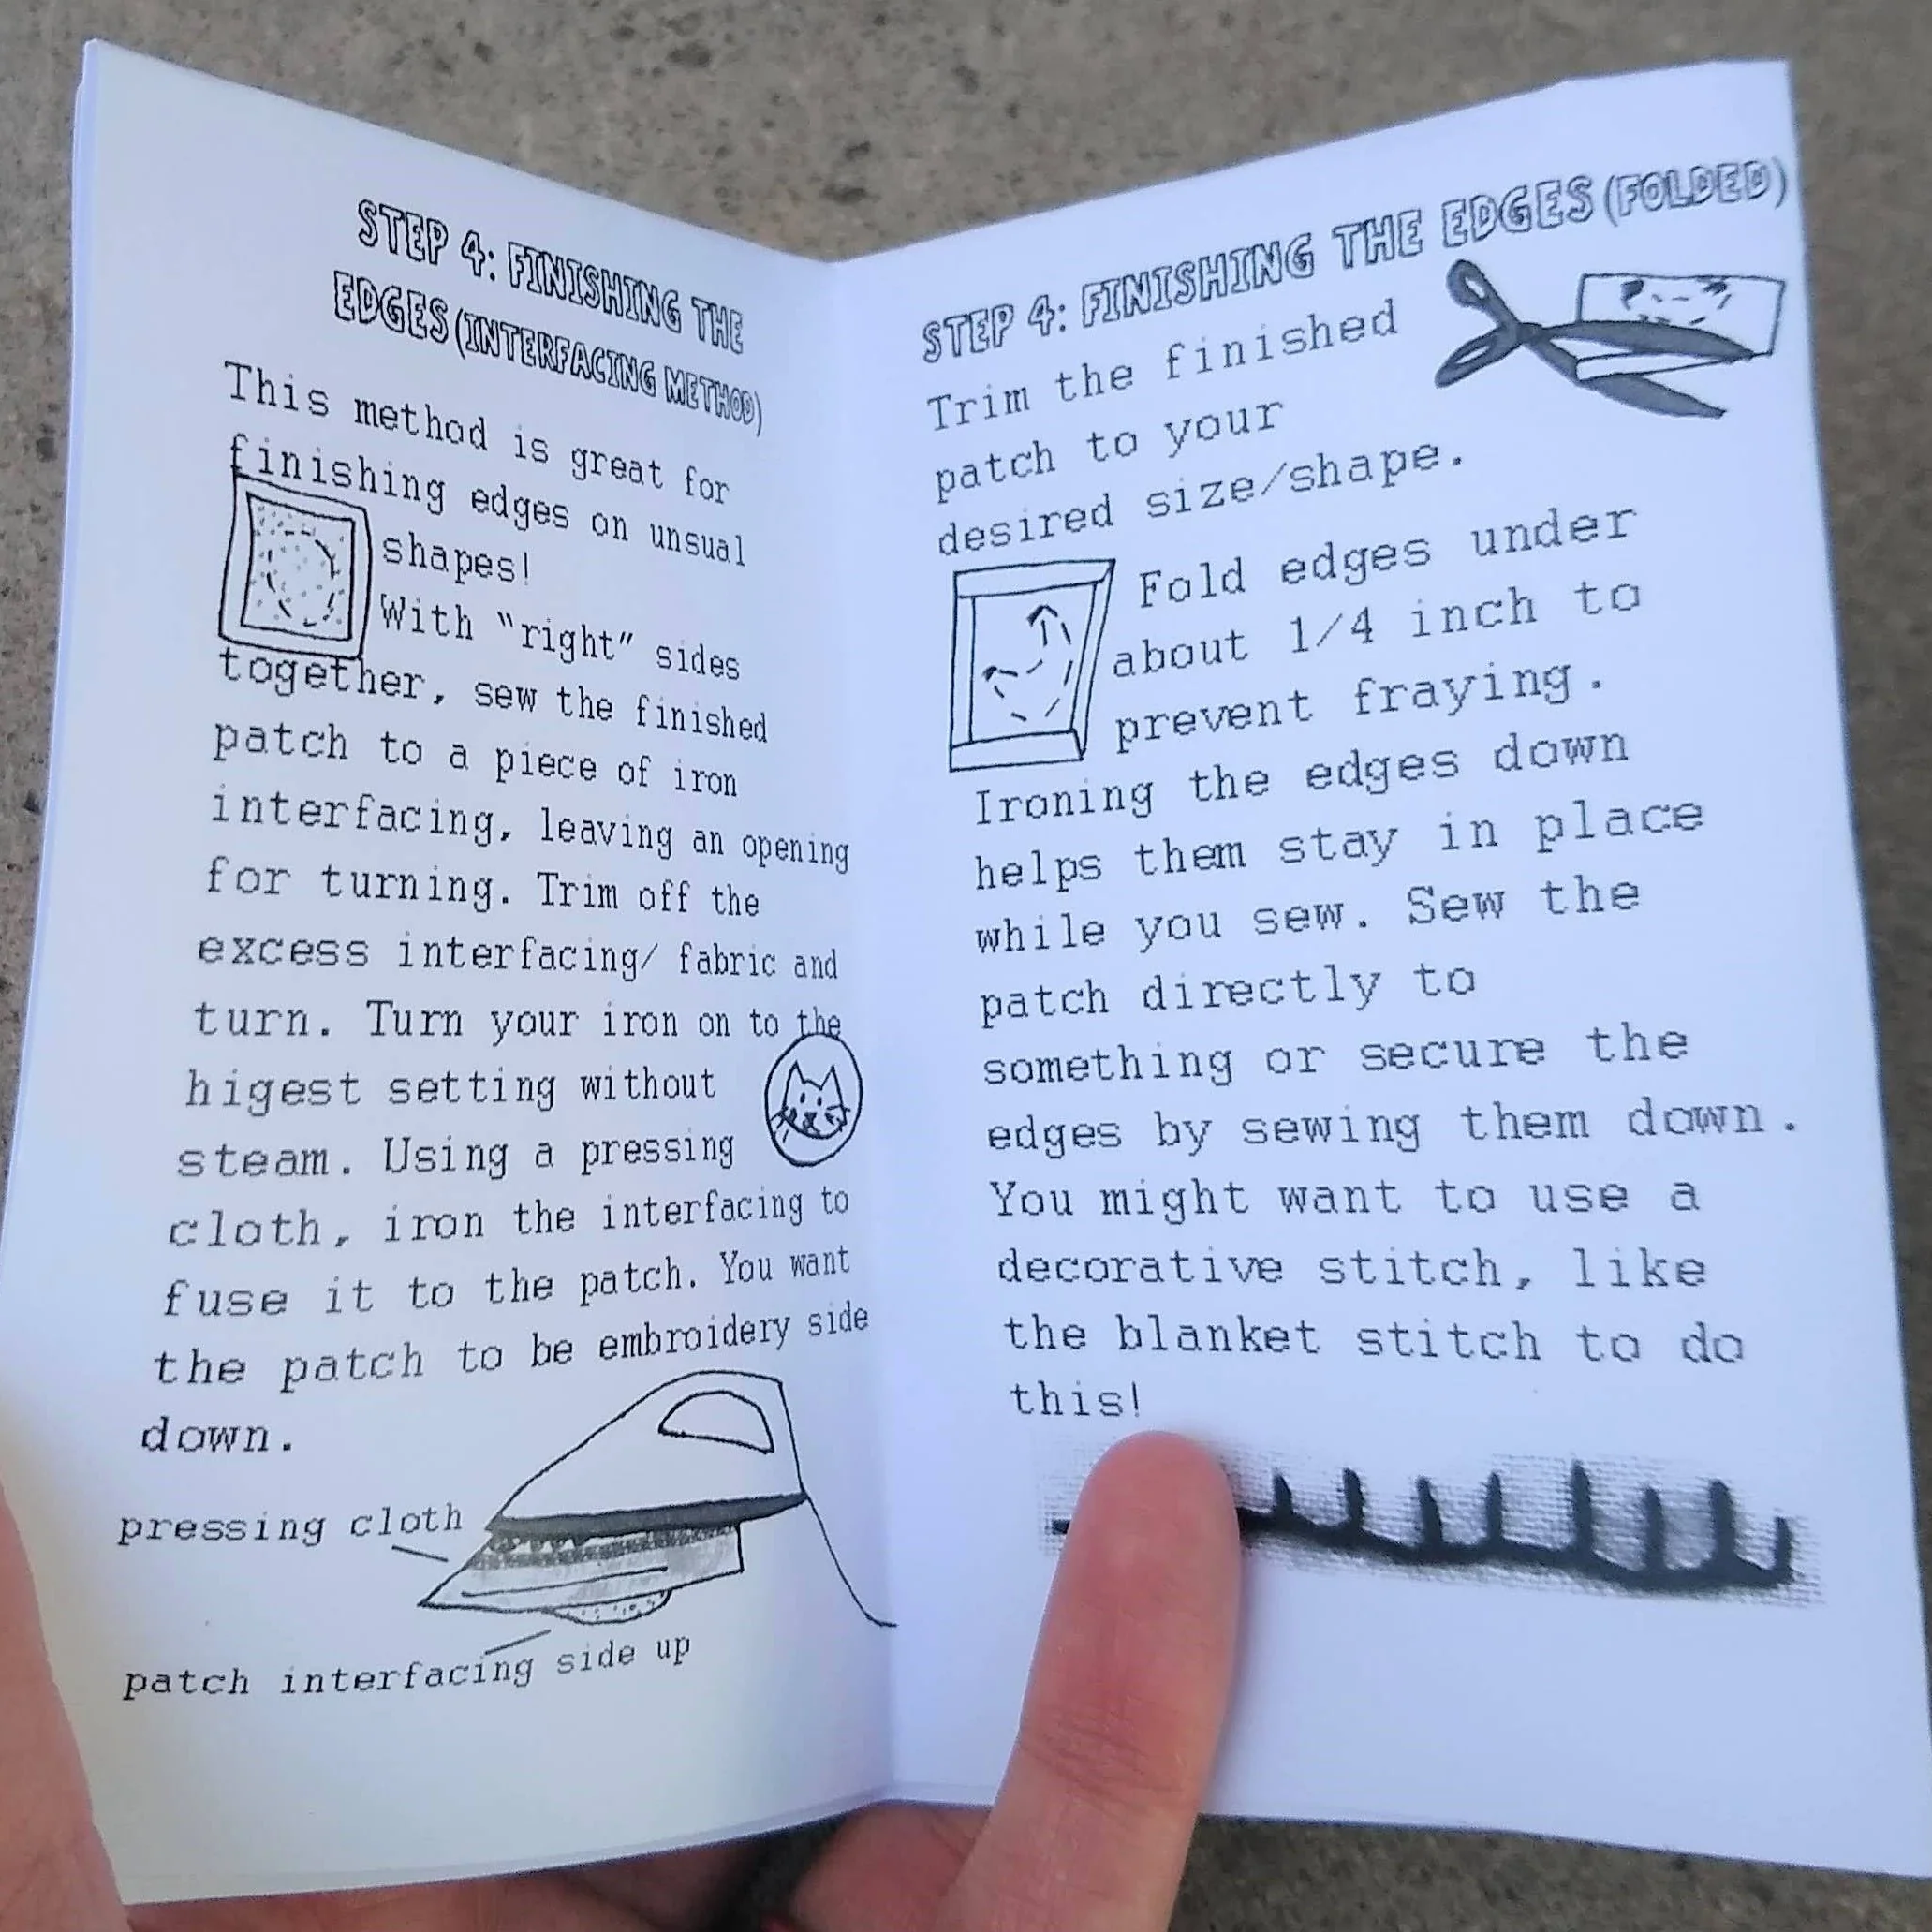 STEP 4: FINISHING THE
EDGES (INTERFACING METHOD)
This method is great for
finishing edges on unsual
shapes!
With "right" sides
together, sew the finished
patch to a piece of iron
interfacing, leaving an opening
for turning. Trim off the
excess interfacing/ fabric and
turn. Turn your iron on to the
higest setting without
steam. Using a pressing
cloth, iron the interfacing to
fuse it to the patch. You want
the patch to be embroidery side
down.
pressing cloth
patch interfacing side up
STEP 4: FINISHING THE EDGES (FOLDED)
Trim the finished
patch to your
desired size/shape.
Fold edges under
about 1/4 inch to
prevent fraying.
Ironing the edges down
helps them stay in place
while you sew. Sew the
patch directly to
something or secure the
edges by sewing them down.
You might want to use a
decorative stitch, like
the blanket stitch to do
this!